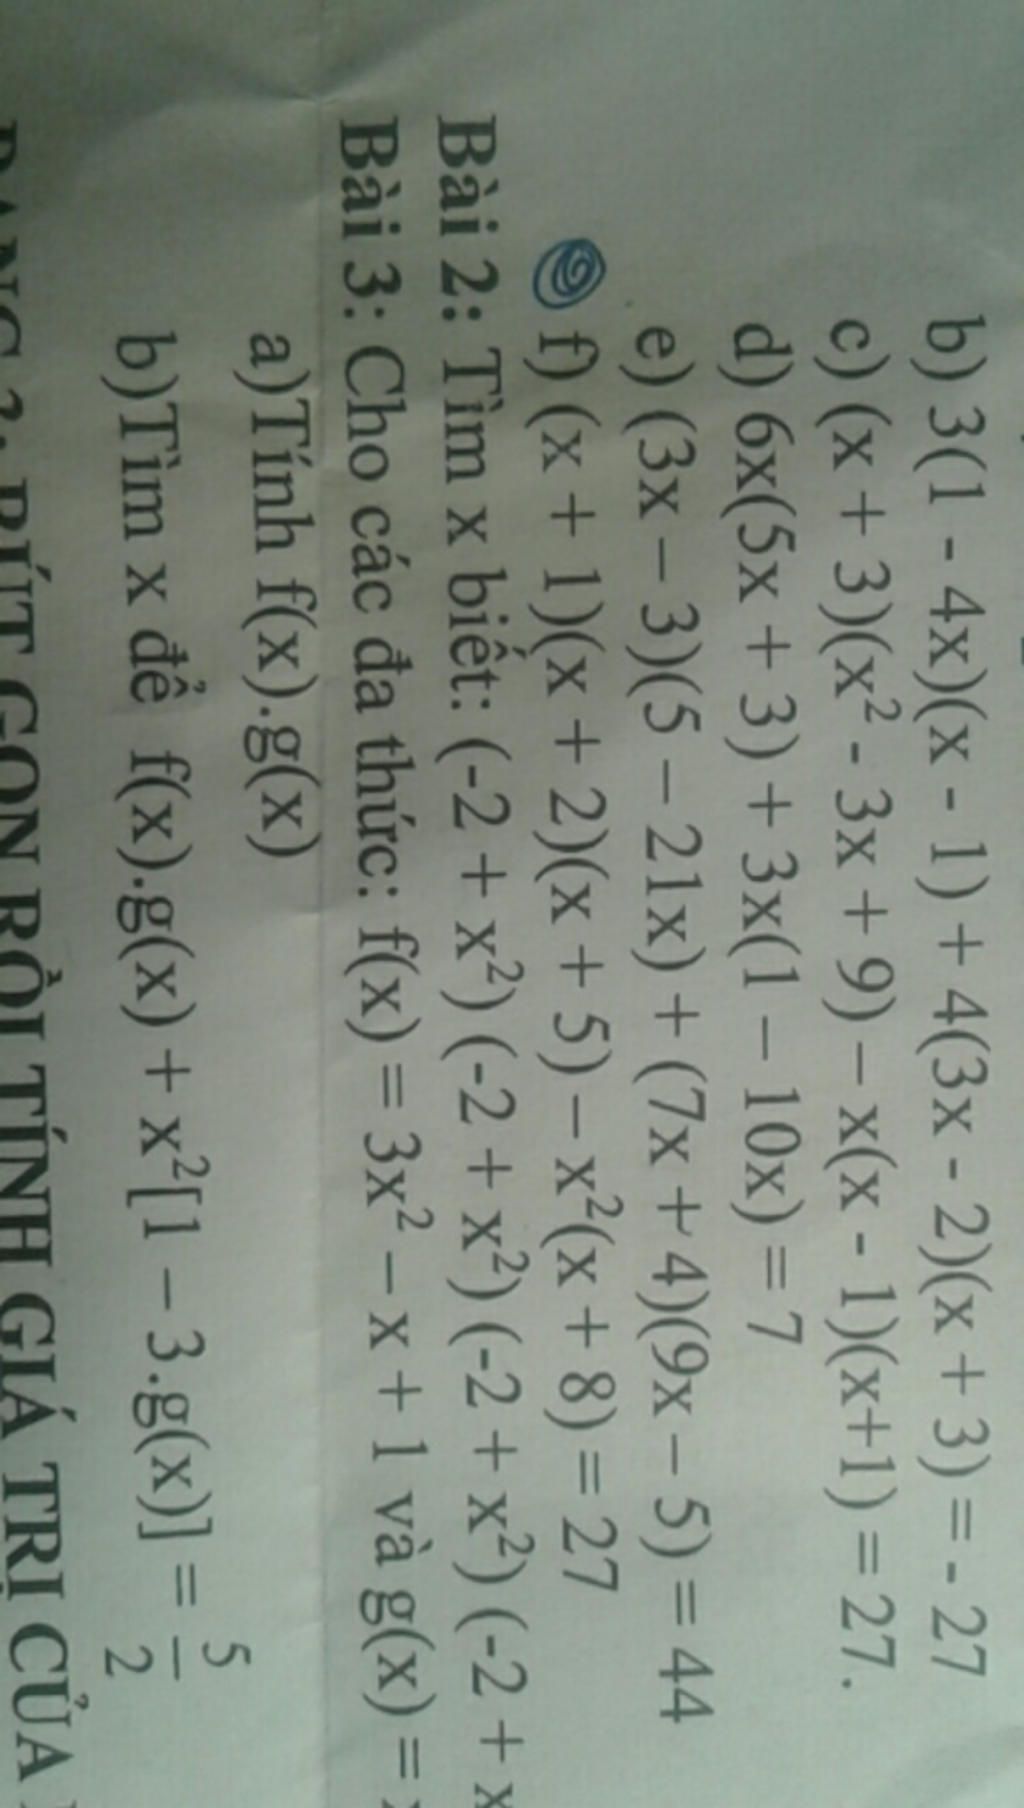 b) 3(1 - 4x)(x - 1) + 4(3x - 2)(x + 3) = - 27
c) (x + 3)(x² - 3x + 9) – x(x - 1)(x+1) = 27.
d) 6x(5x + 3) + 3x(1 – 10x) = 7
e) (3x – 3)(5 – 21x) + (7x + 4)(9x – 5) = 44
f) (x + 1)(x + 2)(x + 5) – x²(x + 8) = 27
Bài 2: Tìm x biết: (-2 + x²) (-2 + x²) (-2 + x²) (-2 + x²) (-2 + x
Bài 3: Cho các đa thức: f(x) = 3x² – x + 1 và g(x) =
a)Tính f(x).g(x)
b)Tìm x để f(x).g(x) + x²[1 – 3.g(x)] = 5/2
RÚT GỌN RỒI TÍNH GIÁ TRỊ CỦA